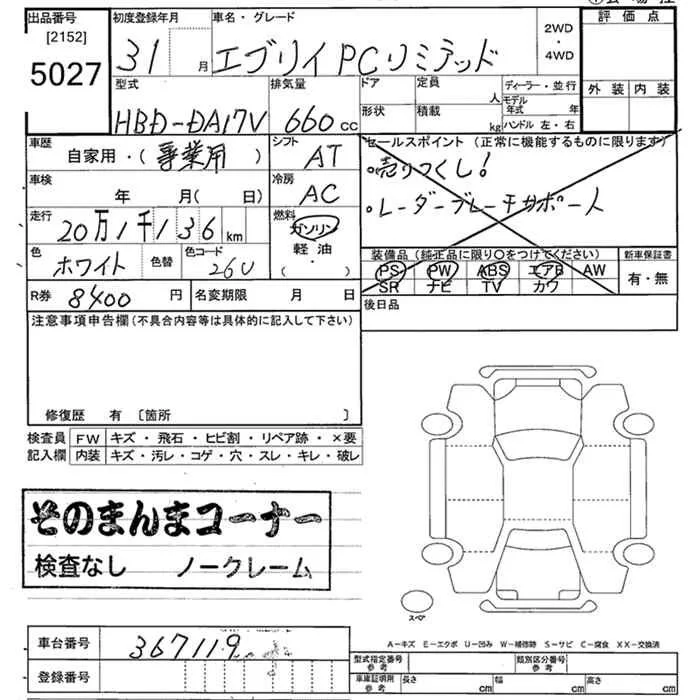 出品番号 初度登録年月 車名・グレード 評価点
[2152]
5027 31 月 エブリイPCリミテッド 2WD・4WD
外装 内装
型式 排気量 ドア 定員 人 ディーラー・並行
HBD-DA17V 660 cc 形状 積載 kg モデル年式 年
ハンドル 左・右
車歴 自家用・(事業用) シフト AT
セールスポイント(正常に機能するものに限ります)
・売りつくし!
・レーダーブレーキサポート
車検 年 月(日) 冷房 AC
走行 20万1千136 km 燃料 ガソリン
軽油
( ・ )
色 ホワイト 色替 色コード 26U
装備品(純正品に限り〇をつけてください) 新車保証書
PS PW ABS エアB AW 有・無
SR ナビ TV カワ
R券 8400 円 名変期限 月 日
後日品
注意事項申告欄(不具合内容等は具体的に記入して下さい)
修復歴 有 〔箇所 〕
検査員 FW キズ・飛石・ヒビ割・リペア跡・×要
記入欄 内装 キズ・汚レ・コゲ・穴・スレ・キレ・破レ
そのまんまコーナー
検査なし ノークレーム
スペア
A-キズ E-エクボ U-凹み W-補修跡 S-サビ C-腐食 XX-交換済
車台番号 367119
登録番号
型式指定番号 参考 類別区分番号 参考
車庫証明用 参考 長さ cm 幅 cm 高さ cm